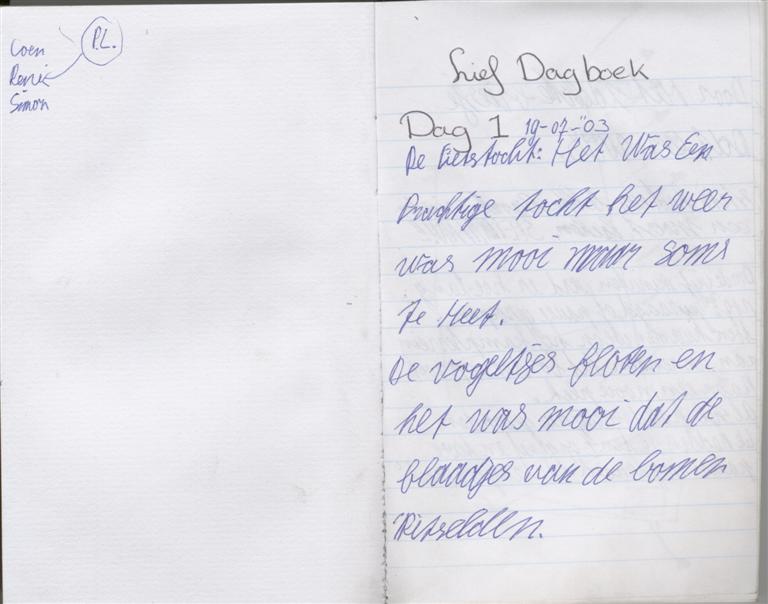 Coen
P.L.
René
Simon
Lief Dagboek
Dag 1 19-07-'03
De Fietstocht: Het Was Een
Prachtige tocht het weer
was mooi maar soms
te Heet.
De vogeltjes floten en
het was mooi dat de
blaadjes van de bomen
Ritselden.